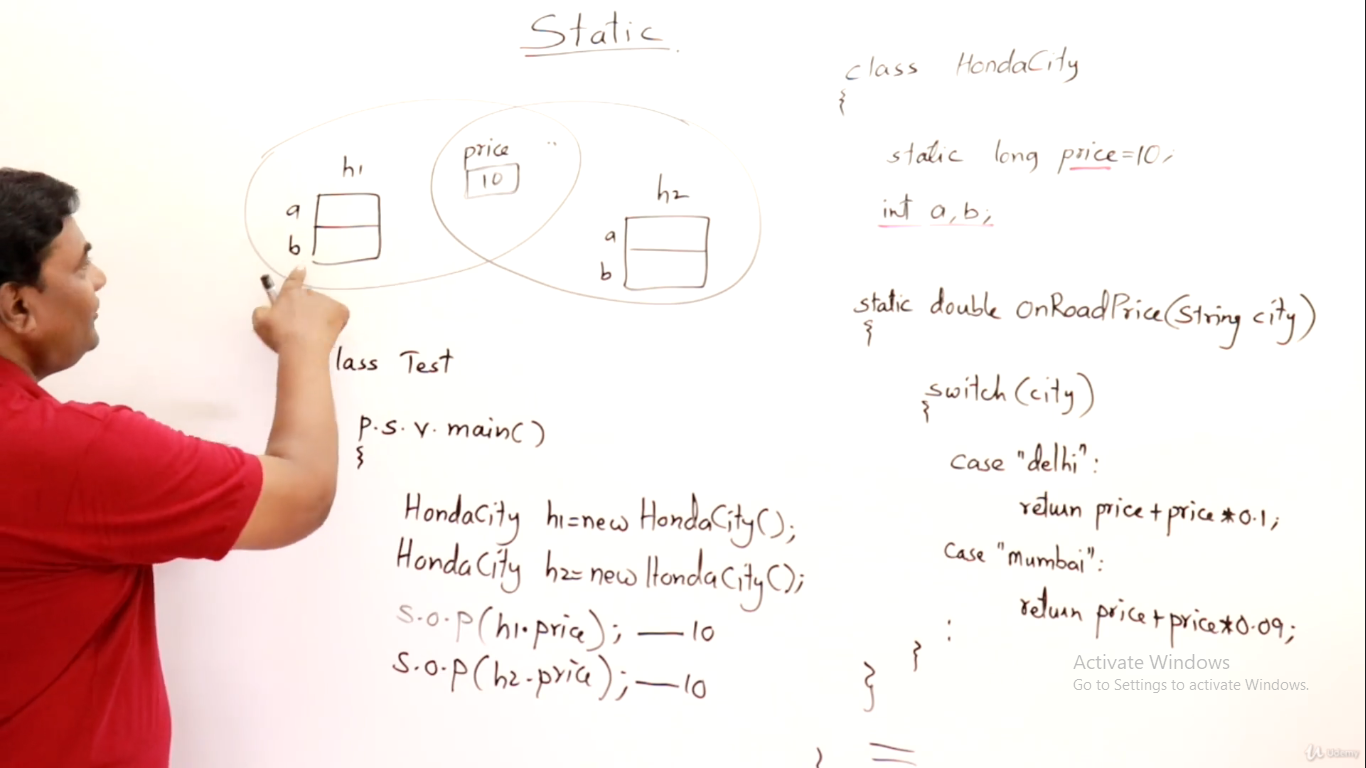 Static
h1
a
b
price
10
h2
a
b
lass Test
p.s.v.main()
{
HondaCity h1=new HondaCity();
HondaCity h2=new HondaCity();
S.O.P(h1.price); — 10
S.O.P(h2.price); — 10
class HondaCity
{
static long price=10;
int a,b;
static double onRoadPrice(String city)
{
switch(city)
{
case "delhi":
return price+price*0.1;
case "mumbai":
return price+price*0.09;
:
}
}
}
Activate Windows
Go to Settings to activate Windows.
Udemy